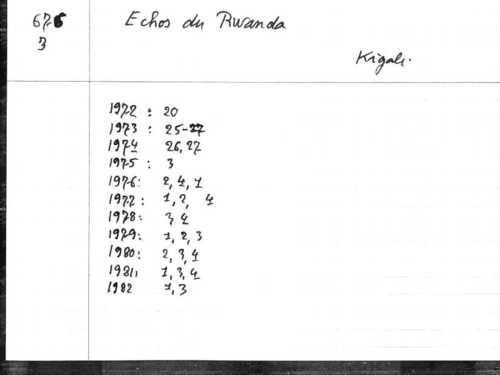 676 Echos du Rwanda
3
Kigali.
1972 : 20
1973 : 25-27
1974 26, 27
1975 : 3
1976: 2, 4, 1
1977 : 1, 2, 4
1978: 3, 4
1979: 1, 2, 3
1980: 2, 3, 4
1981, 1, 3, 4
1982 1, 3